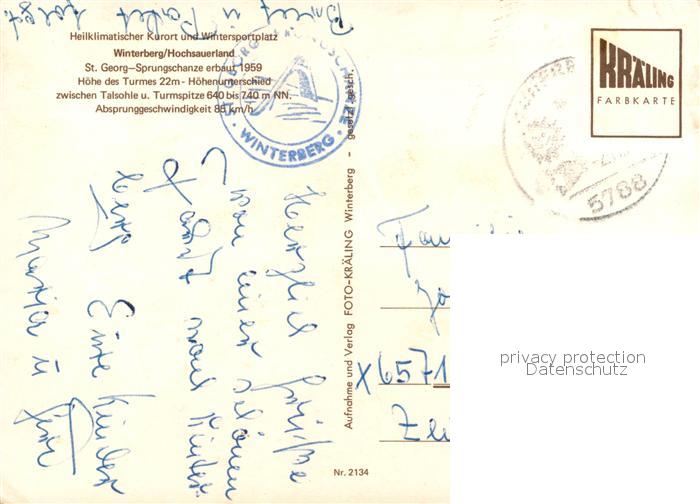 Brief u Paket folgt.
Heilklimatischer Kurort und Wintersportplatz
Winterberg/Hochsauerland
St. Georg—Sprungschanze erbaut 1959
Höhe des Turmes 22m - Höhenunterschied
zwischen Talsohle u. Turmspitze 640 bis 740 m NN.
Absprunggeschwindigkeit 85 km/h
WINTERBERG
KRÄLING
FARBKARTE
5788
Herzlich Grüße
von einer schönen
Fahrt nach
Eure Kinder
Maria u
Aufnahme und Verlag FOTO-KRÄLING Winterberg - gesetzl. gesch.
Nr. 2134
Fam
X6571
privacy protection
Datenschutz